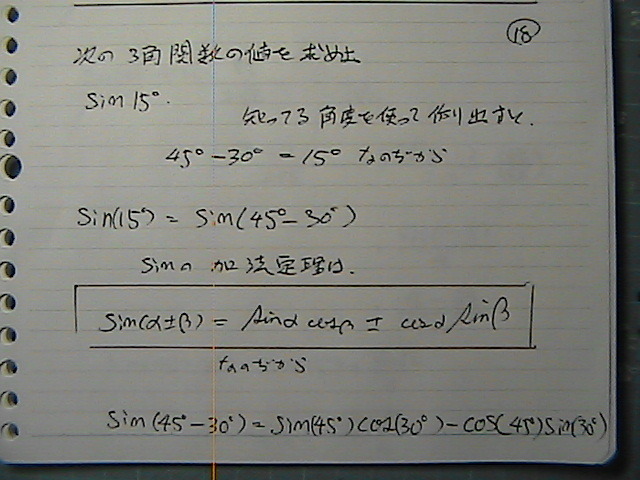 ⑱
次の3角関数の値を求めよ
sin 15°.
知ってる角度を使って作り出すと.
45° - 30° = 15° なのだから
sin(15°) = sin(45° - 30°)
sinの加法定理は.
sin(α±β) = sinα cosβ ± cosα sinβ
なのだから
sin(45° - 30°) = sin(45°)cos(30°) - cos(45°)sin(30°)